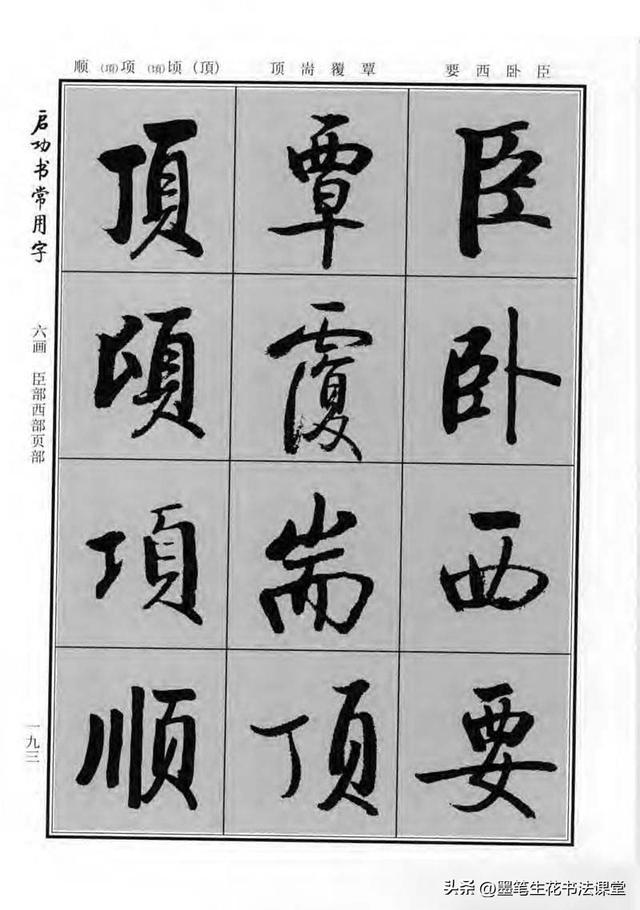 臣卧西要
覃覆耑顶
(頂)顷(頃)项(項)顺
臣卧西要
覃覆耑顶
頂頃項顺
启功书常用字
六画 臣部西部页部
一九三
头条 @墨笔生花书法课堂